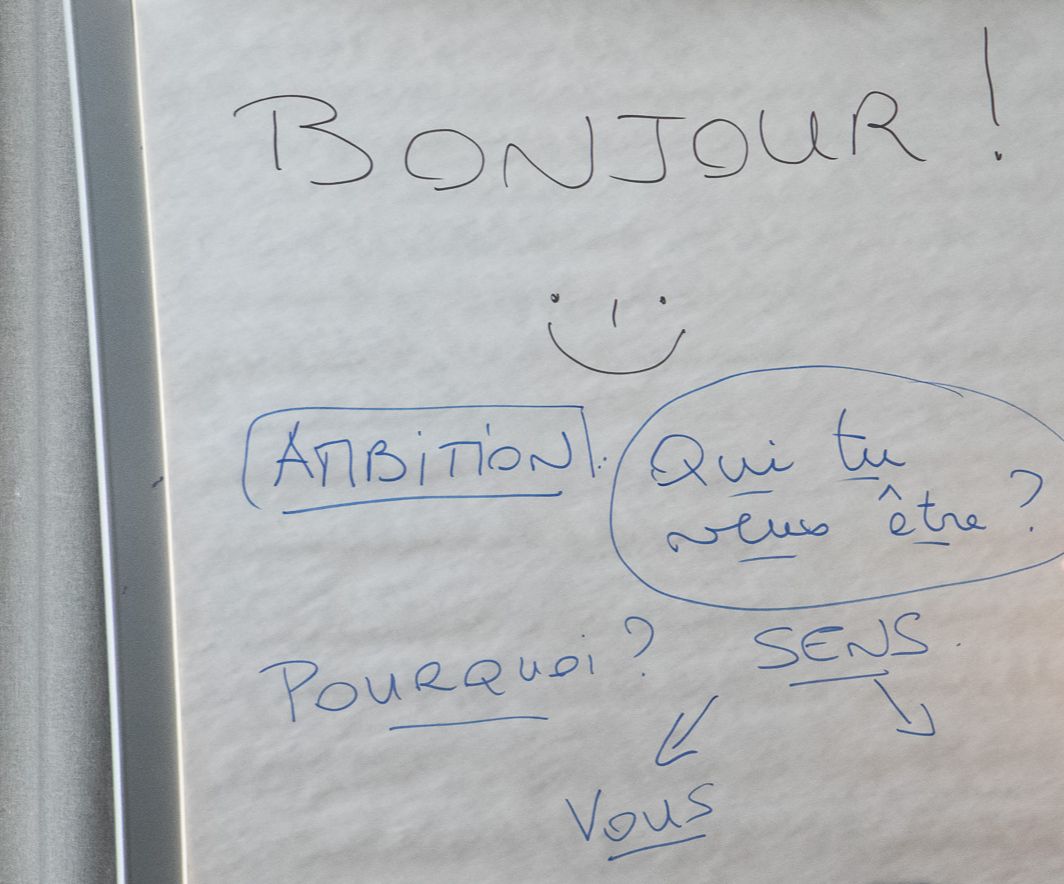 BONJOUR !
AMBITION. Qui tu
veux être ?
POURQUOI ? SENS.
VOUS